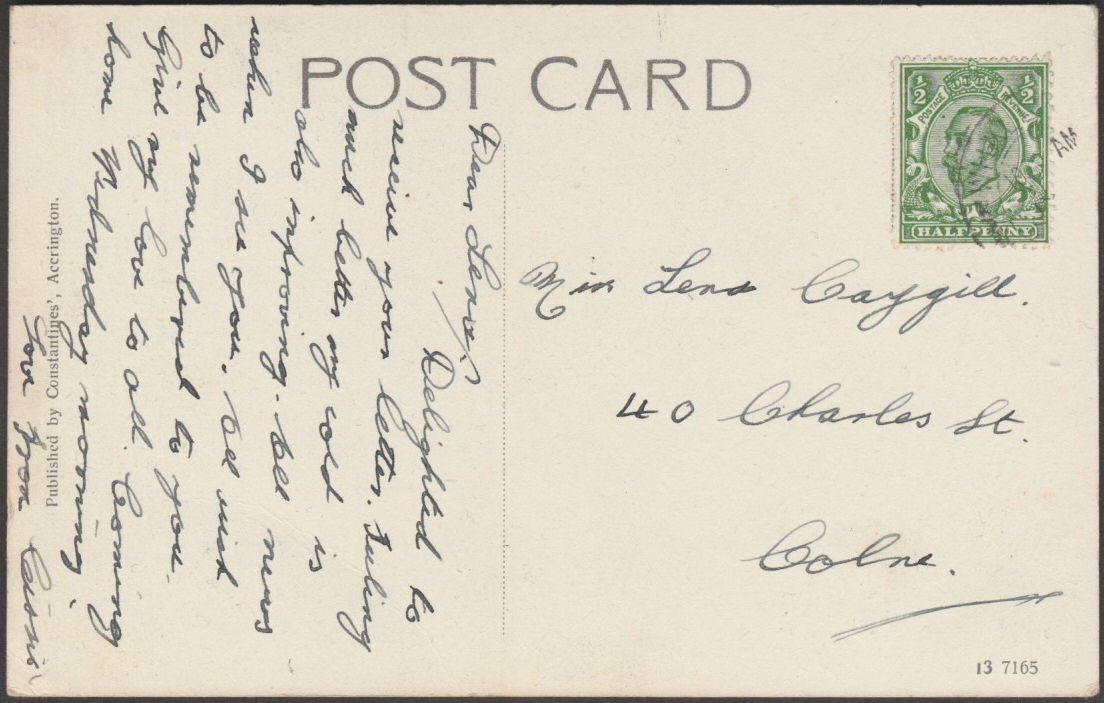 POST CARD
Dear Lenie,
Delighted to
receive your letter. Fuling
much better my cold is
also inproving. All news
when I see you. All wish
to be remembered to you.
Give my love to all. Coming
home Wednesday morning.
Love from Cassie
Published by Constantines', Accrington.
½ ½
POSTAGE REVENUE
HALFPENNY
AM
Miss Lena Caygill.
40 Charles St.
Colne.
13 7165